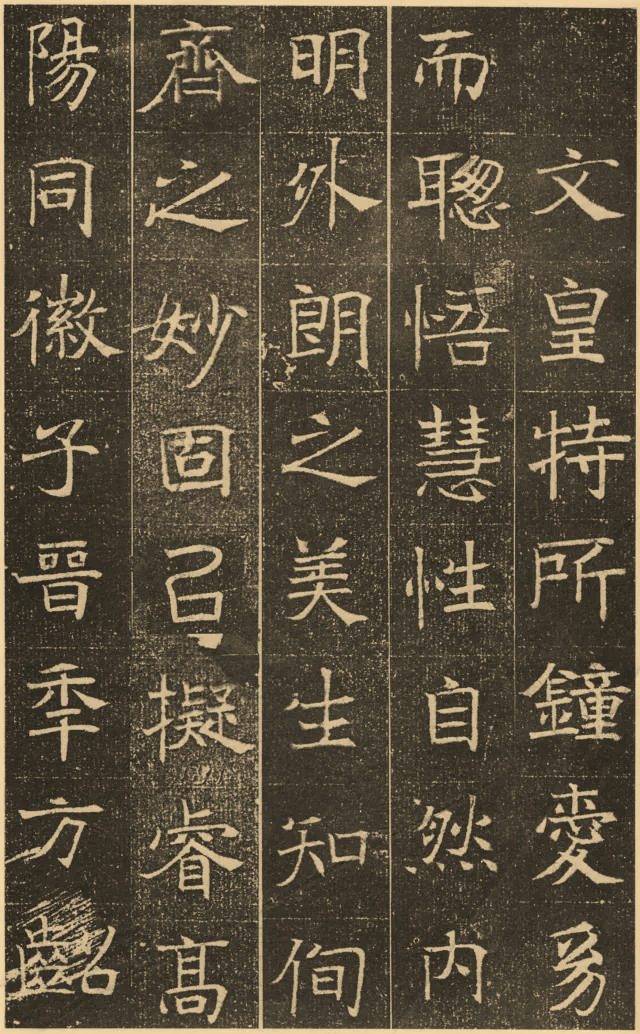 文皇特所鐘愛幼
而聰悟慧性自然内
明外朗之美生知侚
齊之妙固㠯擬睿高
陽同徽子晉秊方齠